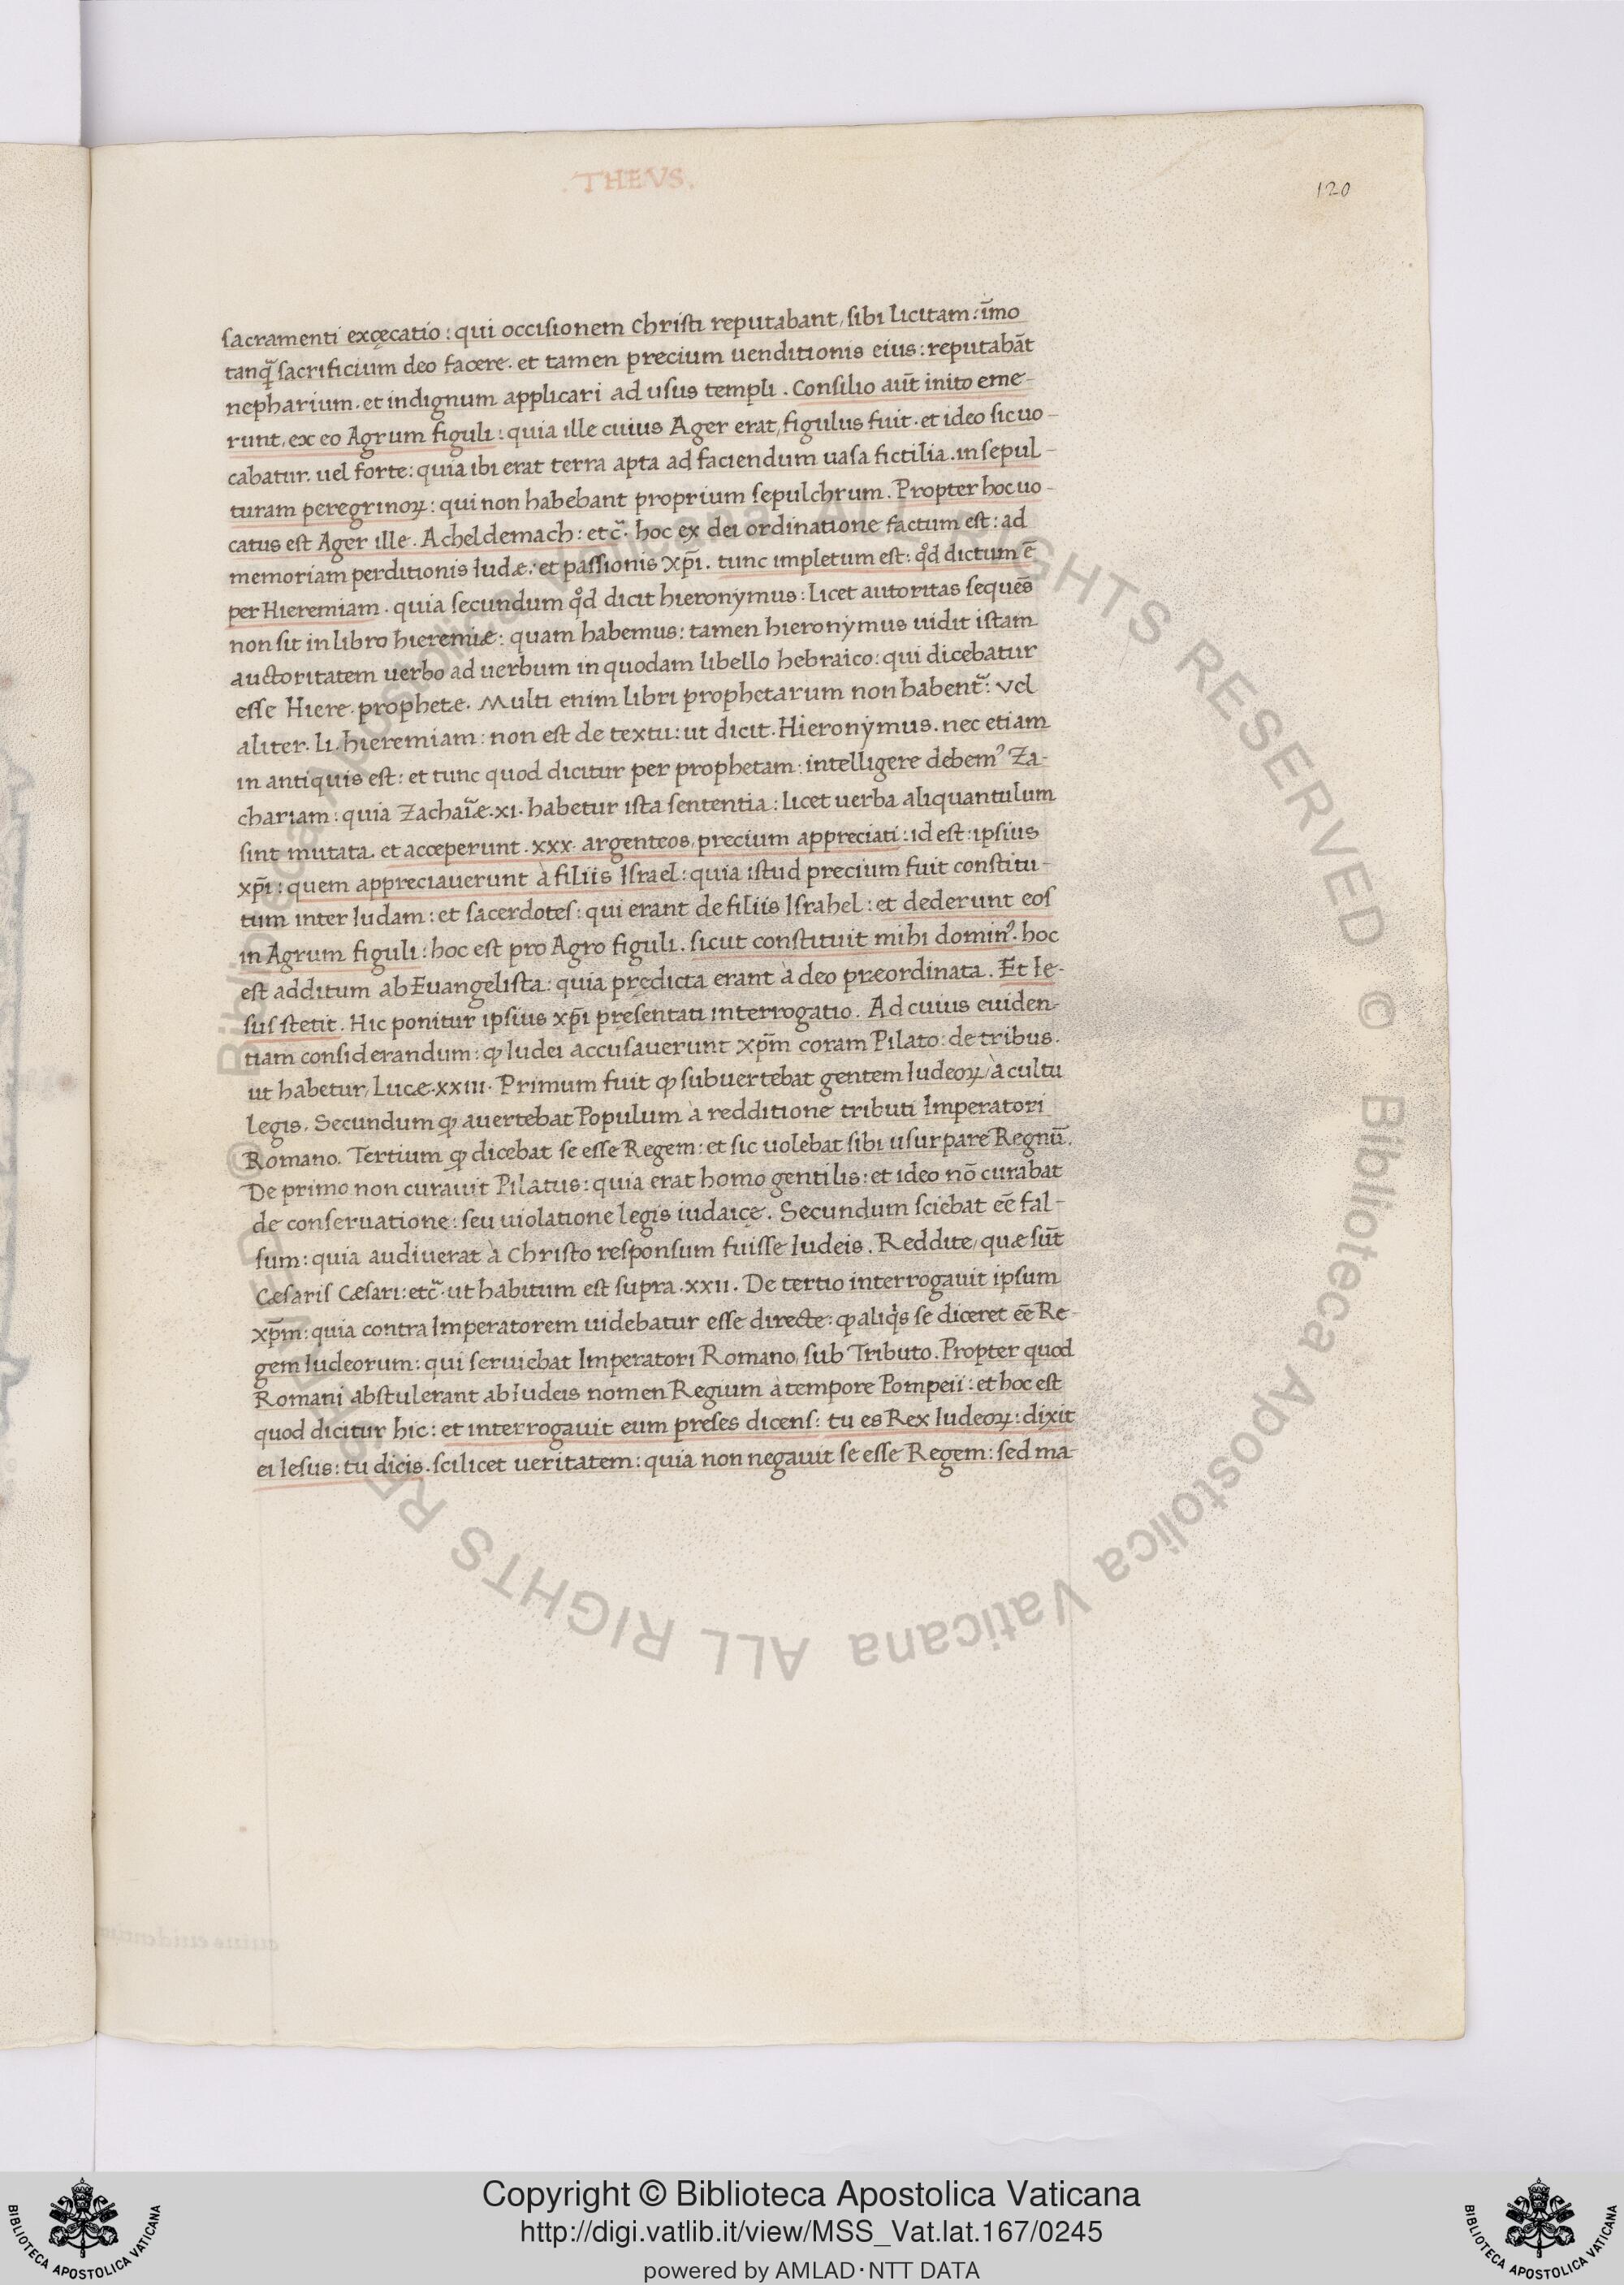 .THEVS.
120
sacramenti excęcatio: qui occisionem Christi reputabant, sibi licitam: īmo
tanq̃ sacrificium deo facere. et tamen precium uenditionis eius: reputabāt
nepharium. et indignum applicari ad usus templi. Consilio aut̄ inito eme-
runt, ex eo Agrum figuli: quia ille cuius Ager erat, figulus fuit. et ideo sic uo-
cabatur. uel forte: quia ibi erat terra apta ad faciendum uasa fictilia. in sepul-
turam peregrinoꝝ: qui non habebant proprium sepulchrum. Propter hoc uo-
catus est Ager ille. Acheldemach: etc̃. hoc ex dei ordinatione factum est: ad
memoriam perditionis Iudæ: et passionis xp̄i. tunc impletum est: qd̊ dictum ē
per Hieremiam. quia secundum qd̊ dicit hieronymus: Licet autoritas sequēs
non sit in libro hieremiæ: quam habemus: tamen hieronymus uidit istam
auctoritatem uerbo ad uerbum in quodam libello hebraico: qui dicebatur
esse Hiere. prophetæ. Multi enim libri prophetarum non habent᷑: Vel
aliter. li. hieremiam: non est de textu: ut dicit. Hieronymus. nec etiam
in antiquis est: et tunc quod dicitur per prophetam: intelligere debemꝰ Za-
chariam: quia Zachaīæ. xi. habetur ista sententia: licet uerba aliquantulum
sint mutata. et acceperunt. xxx. argenteos, precium appreciati: id est: ipsius
xp̄i: quem appreciauerunt à filiis Israel: quia istud precium fuit constitu-
tum inter Iudam: et sacerdotes: qui erant de filiis Israhel: et dederunt eos
in Agrum figuli: hoc est pro Agro figuli. sicut constituit mihi dominꝰ. hoc
est additum ab Euangelista: quia prędicta erant à deo præordinata. Et Ie-
sus stetit. Hic ponitur ipsius xp̄i pręsentati interrogatio. Ad cuius euiden-
tiam considerandum: ꝙ Iudei accusauerunt xp̄m coram Pilato: de tribus.
ut habetur, Lucæ. xxiii. Primum fuit ꝙ subuertebat gentem Iudeoꝝ, à cultu
legis. Secundum ꝙ auertebat Populum à redditione tributi Imperatori
Romano. Tertium ꝙ dicebat se esse Regem: et sic uolebat sibi usurpare Regnū.
De primo non curauit Pilatus: quia erat homo gentilis: et ideo nō curabat
de conseruatione: seu uiolatione legis iudaicę. Secundum sciebat eē fal-
sum: quia audiuerat à Christo responsum fuisse Iudeis. Reddite, quæ sūt
Cæsaris Cæsari: etc̃. ut habitum est supra. xxii. De tertio interrogauit ipsum
xp̄m: quia contra Imperatorem uidebatur esse directe: ꝙ aliq̇s se diceret eē Re-
gem Iudeorum: qui seruiebat Imperatori Romano, sub Tributo. Propter quod
Romani abstulerant ab Iudeis nomen Regium à tempore Pompeii: et hoc est
quod dicitur hic: et interrogauit eum preses dicens: tu es Rex Iudeoꝝ: dixit
ei Iesus: tu dicis. scilicet ueritatem: quia non negauit se esse Regem: sed ma-
© Biblioteca Apostolica Vaticana ALL RIGHTS RESERVED © Biblioteca Apostolica Vaticana ALL RIGHTS RESERVED
Copyright © Biblioteca Apostolica Vaticana
http://digi.vatlib.it/view/MSS_Vat.lat.167/0245
powered by AMLAD·NTT DATA
BIBLIOTECA APOSTOLICA VATICANA
BIBLIOTECA APOSTOLICA VATICANA